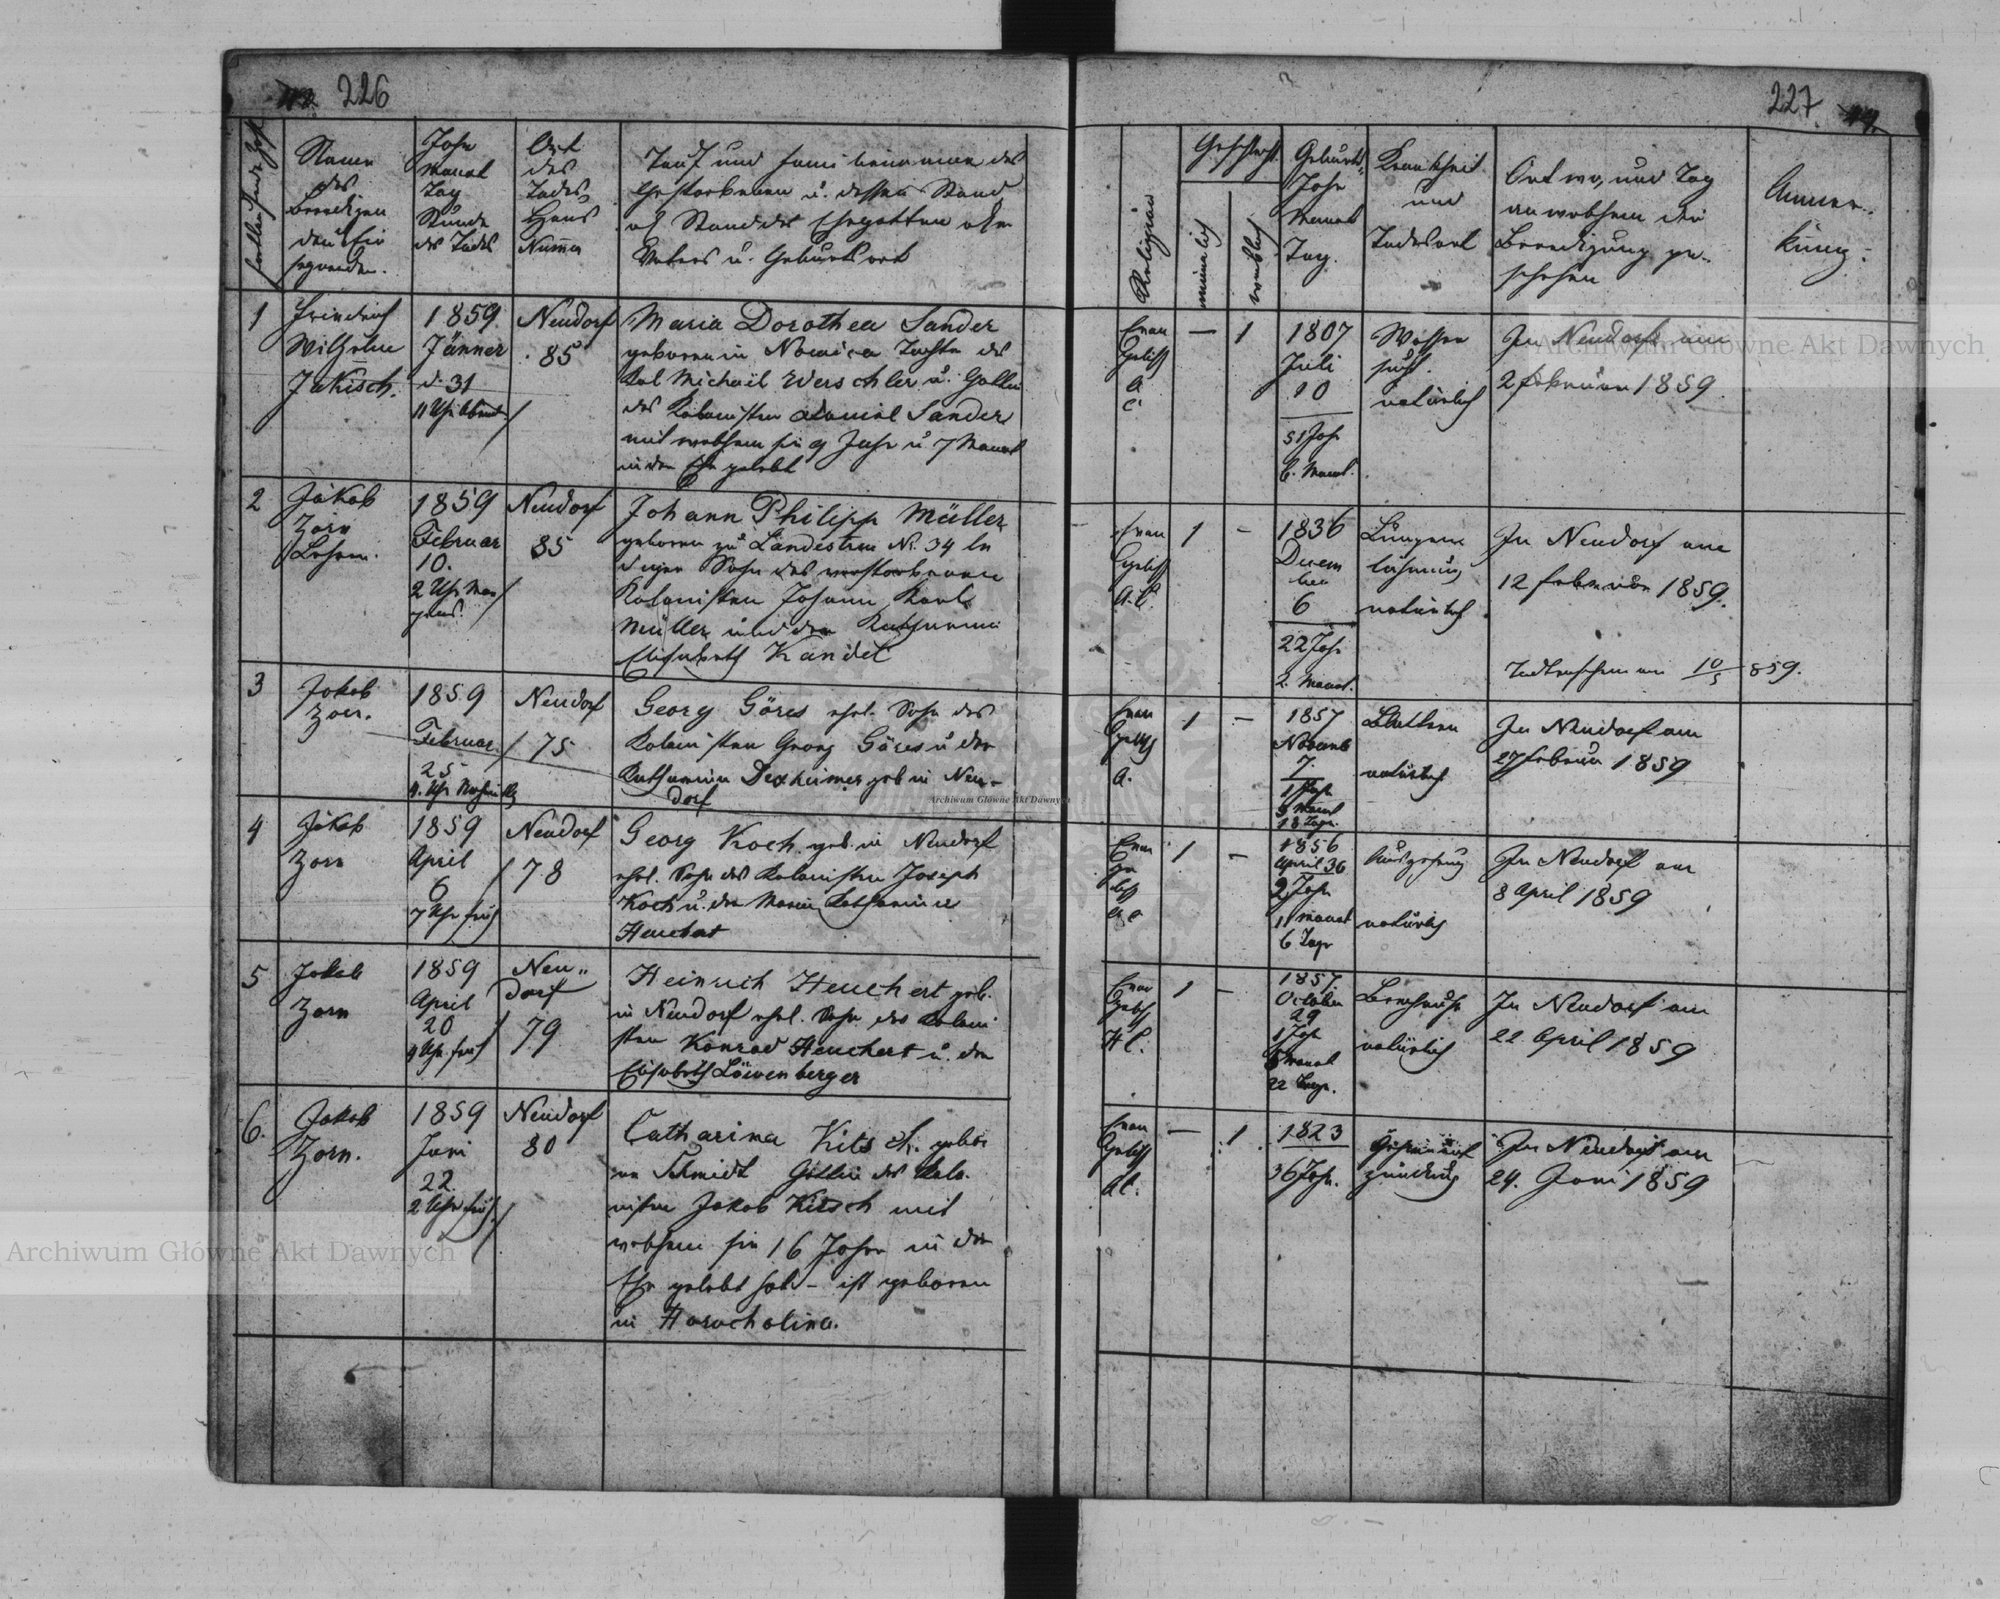 226
fortlaufende Zahl
Namen
des
Beerdigen
den Ein
segnenden.
Jahr
Monat
Tag
Stunde
des Todes
Ort
des
Todes,
Haus
Numer
Tauf und Familienname des
Verstorbenen u. dessen Stand
od Stand des Ehegatten oder
Vaters u. Geburtsort
1
Friedrich
Wilhelm
Jakisch.
1859
Jänner
d. 31
11 Uhr Abend
Neudorf
85
Maria Dorothea Sander
geboren in Tochter des
Kol Michael Werschler u. Gattin
des Kolonisten Daniel Sander
mit welchem sie 9 Jahr u 7 Monat
in der Ehe gelebt
2
Jakob
Zorn
Lehrer.
1859
Februar
10.
2 Uhr Mor
gens
Neudorf
85
Johann Philipp Müller
geboren zu Landestreu Nr. 34 le
diger Sohn des verstorbenen
Kolonisten Johann Karl
Müller und der Katharina
Elisabeth Kandel
3
Jakob
Zorn.
1859
Februar
25
4. Uhr Nachmittg
Neudorf
75
Georg Göres ehel. Sohn des
Kolonisten Georg Göres u der
Katharina Dexheimer geb in Neu-
dorf
4
Jakob
Zorn
1859
April
6
7 Uhr früh
Neudorf
78
Georg Koch. geb. in Neudorf
ehel. Sohn des Kolonisten Joseph
Koch u. der Maria Katharina
Heuchert
5
Jakob
Zorn
1859
April
20
4 Uhr früh
Neu„
dorf
79
Heinrich Heuchert geb.
in Neudorf ehel. Sohn des Koloni
sten Konrad Heuchert u. der
Elisabeth Löwenberger
6.
Jakob
Zorn.
1859
Juni
22
2 Uhr früh
Neudorf
80
Catharina Kitsch. gebor
ne Schmidt Gattin des Kolo.
nisten Jakob Kitsch mit
welchem sie 16 Jahre in der
Ehe gelebt hat – ist geboren
in Horocholina.
227
Religion
Geschlecht
männlich
weiblich
Geburts
Jahr
Monat
Tag.
Krankheit
und
Todesart
Ort wo, und Tag
an welchem die
Beerdigung ge-
schehen
Anmer.
kung.
Evan
gelisch
A.
C.
— 1
1807
Juli
10
51 Jahr
6. Monat.
Wasser
sucht.
natürlich
In Neudorf am
2 Februar 1859
Evan
gelisch
A.C.
1 –
1836
Decem
ber
6
22 Jahr
2. Monat.
Lungen
lähmung
natürlich
In Neudorf am
12 Februar 1859.
Todtenschein am 10/5 859.
Evan
gelisch
A.
1 –
1857
Novemb
7.
1 Jahr
3 Monat
18 Tage.
Blattern
natürlich
In Neudorf am
27 Februar 1859
Evan
ge
lisch
A.C
1 –
1856
April 30
2 Jahr
11 Monat
6 Tage
Auszehrung
natürlich
In Neudorf am
8 April 1859
Evan
gelisch
H C.
1 –
1857.
October
29
1 Jahr
5 Monat
22 Tage.
natürlich
In Neudorf am
22 April 1859
Evan
gelisch
— 1
1823
36 Jahr.
zündung
In Neudorf am
24. Juni 1859
Archiwum Główne Akt Dawnych
Archiwum Główne Akt Dawnych
Archiwum Główne Akt Dawnych